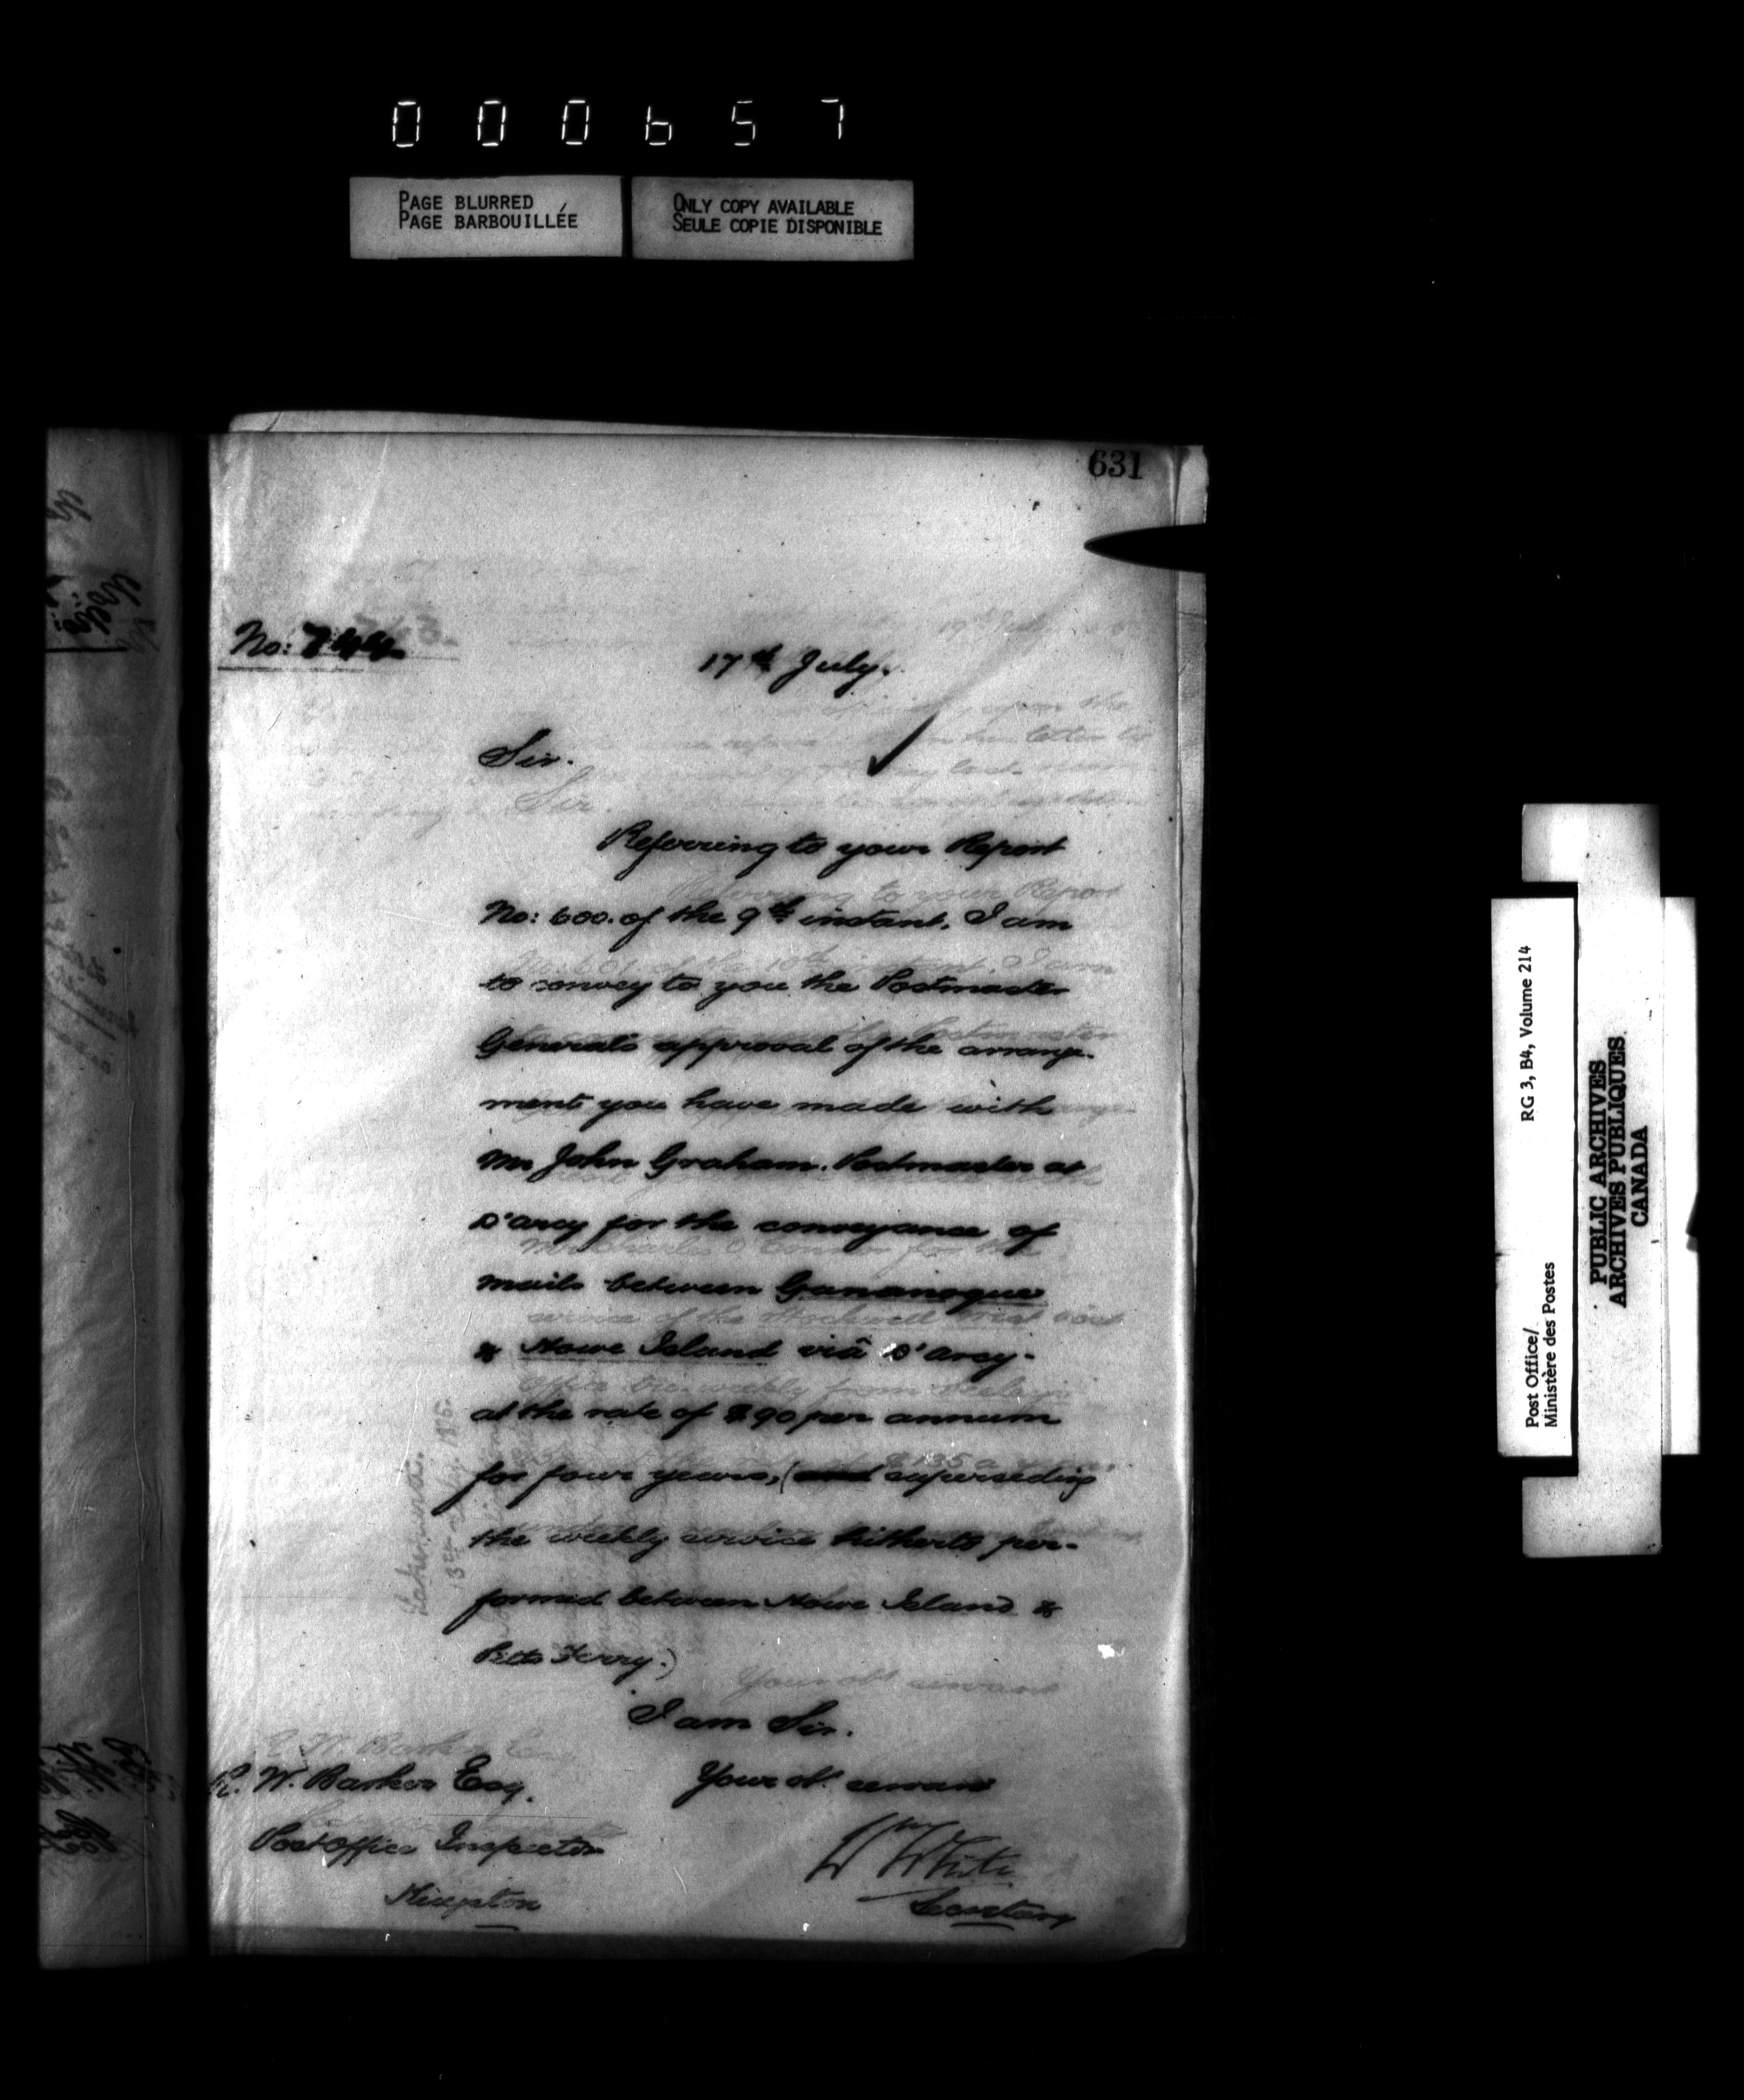 000657
PAGE BLURRED
PAGE BARBOUILLÉE
ONLY COPY AVAILABLE
SEULE COPIE DISPONIBLE
631
No: 744
17th July.
Sir.
Referring to your Report
No: 600. of the 9th instant, I am
to convey to you the Postmaster
Generals approval of the arrange-
ment you have made with
Mr John Graham. Postmaster at
D'Arcy for the conveyance of
Mails between Gananoque
& Howe Island viâ D'Arcy.
at the rate of $90 per annum
for four years, (and superseding
the weekly service hitherto per-
formed between Howe Island &
Pitts Ferry.)
I am Sir.
Your obt servant
R. W. Barker Esq.
Post Office Inspector
Kingston
Wm White
Secretary
Post Office/
Ministère des Postes
RG 3, B4, Volume 214
PUBLIC ARCHIVES
ARCHIVES PUBLIQUES
CANADA